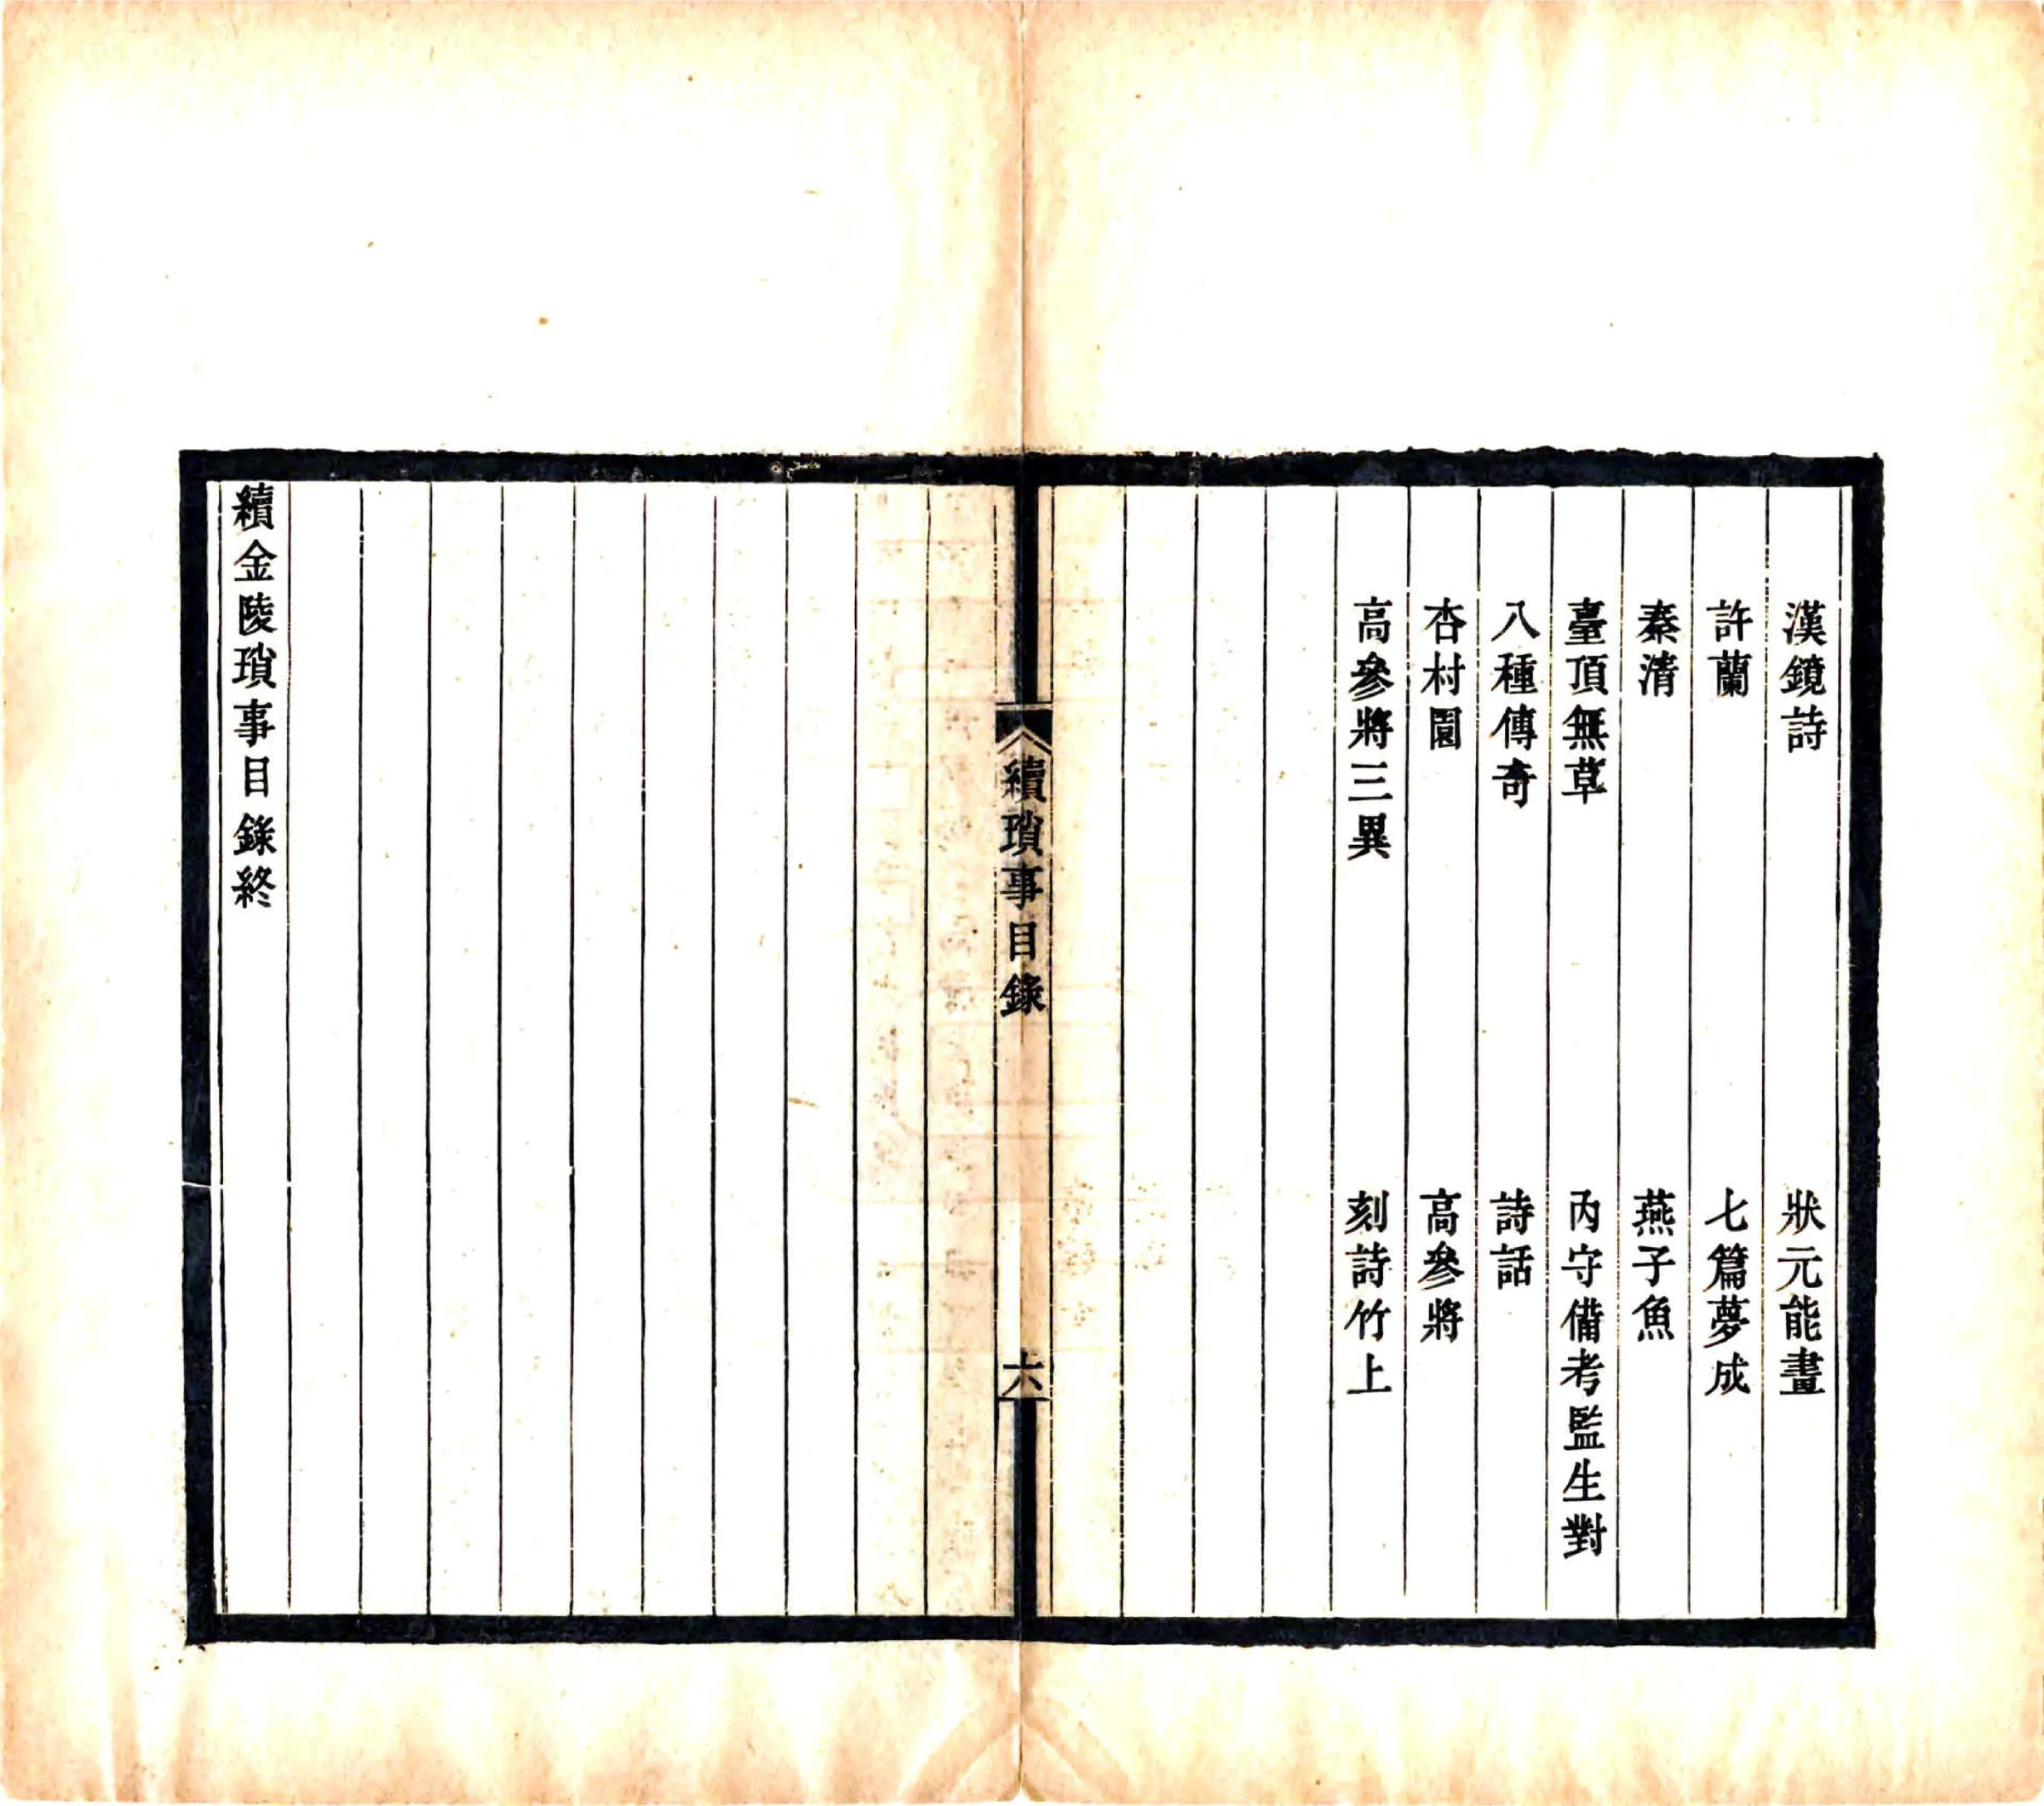 漢鏡詩　狀元能畫
許蘭　七篇夢成
秦清　燕子魚
臺頂無草　內守備考監生對
八種傳奇　詩話
杏村園　高參將
高參將三異　刻詩竹上
續瑣事目錄　六
續金陵瑣事目錄終